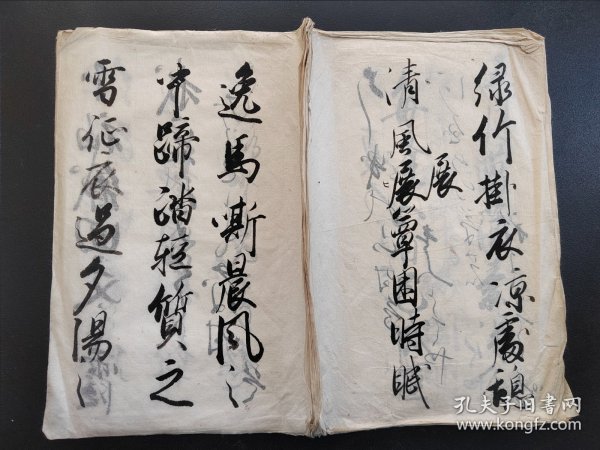 绿竹掛衣凉處憩
清風展簟困時眠
展
逸馬嘶晨風
中蹄踏輕質之
雪征衣過夕陽
孔夫子旧书网
www.kongfz.com